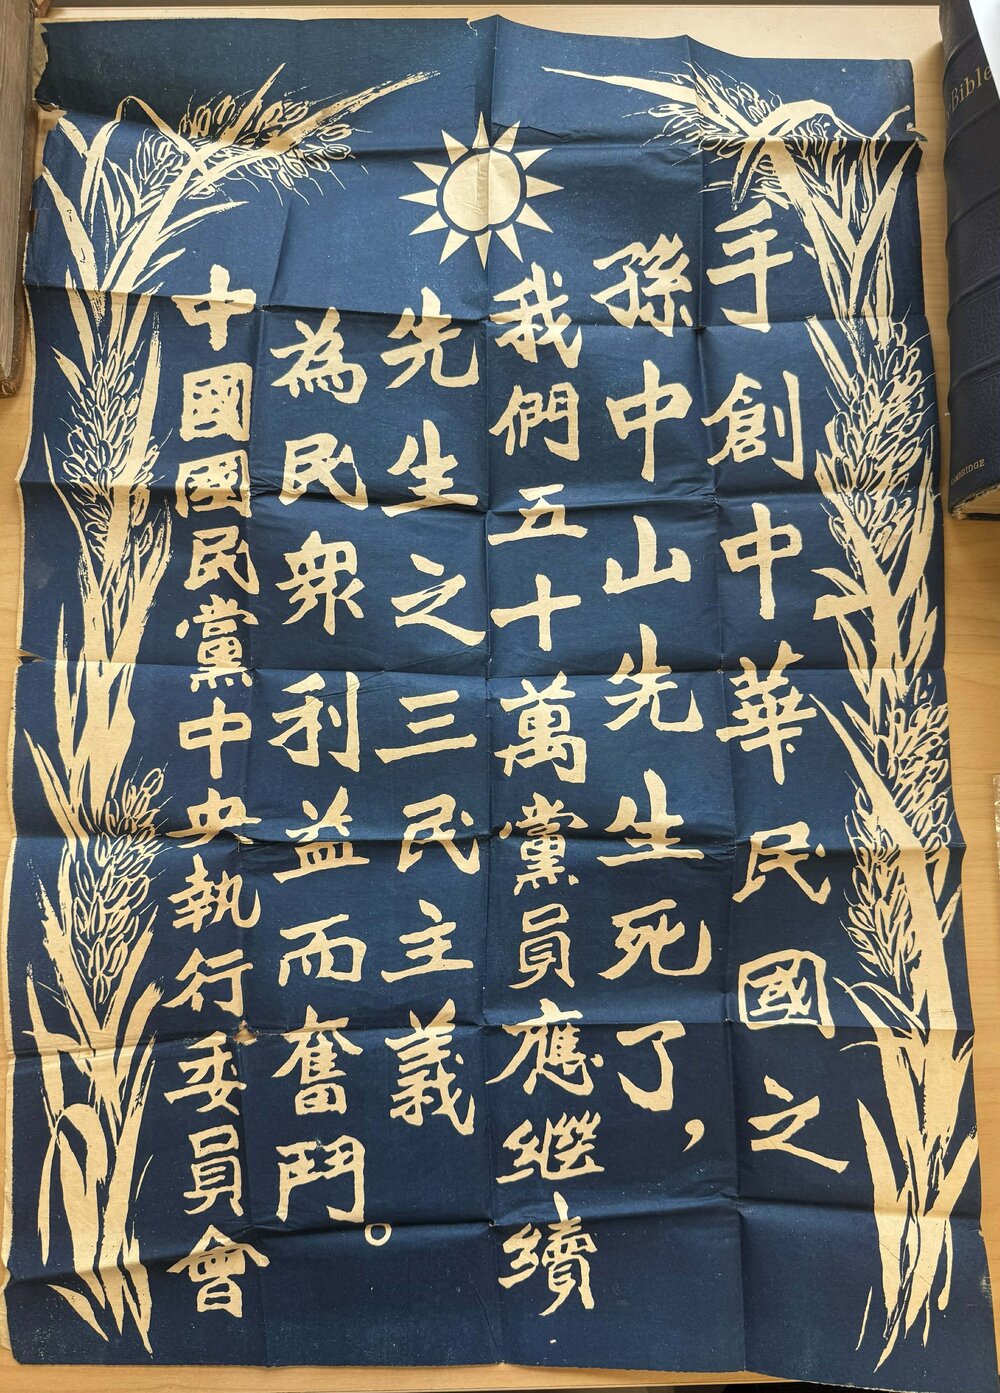 手創中華民國之
孫中山先生死了，
我們五十萬黨員應繼續
先生之三民主義
為民眾利益而奮鬥。
中國國民黨中央執行委員會
Bible
CAMBRIDGE